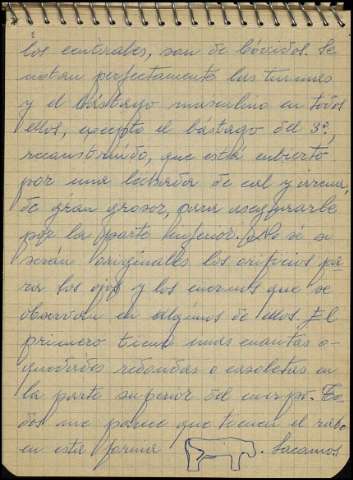 los centrales, son de bóvidos. Se
notan perfectamente las turmas
y el bástago masculino en todos
ellos, excepto el bástago del 3º,
reconstruido, que está cubierto
por una lechada de cal y arena,
de gran grosor, para asegurarle
por la parte inferior. No sé si
serán originales los orificios pa
ra los ojos y los cuernos que se
observan en algunos de ellos. El
primero tiene unas cuantas o-
quedades redondas o cazoletas en
la parte superior del cuerpo. To
dos me parece que tienen el rabo
en esta forma . Sacamos